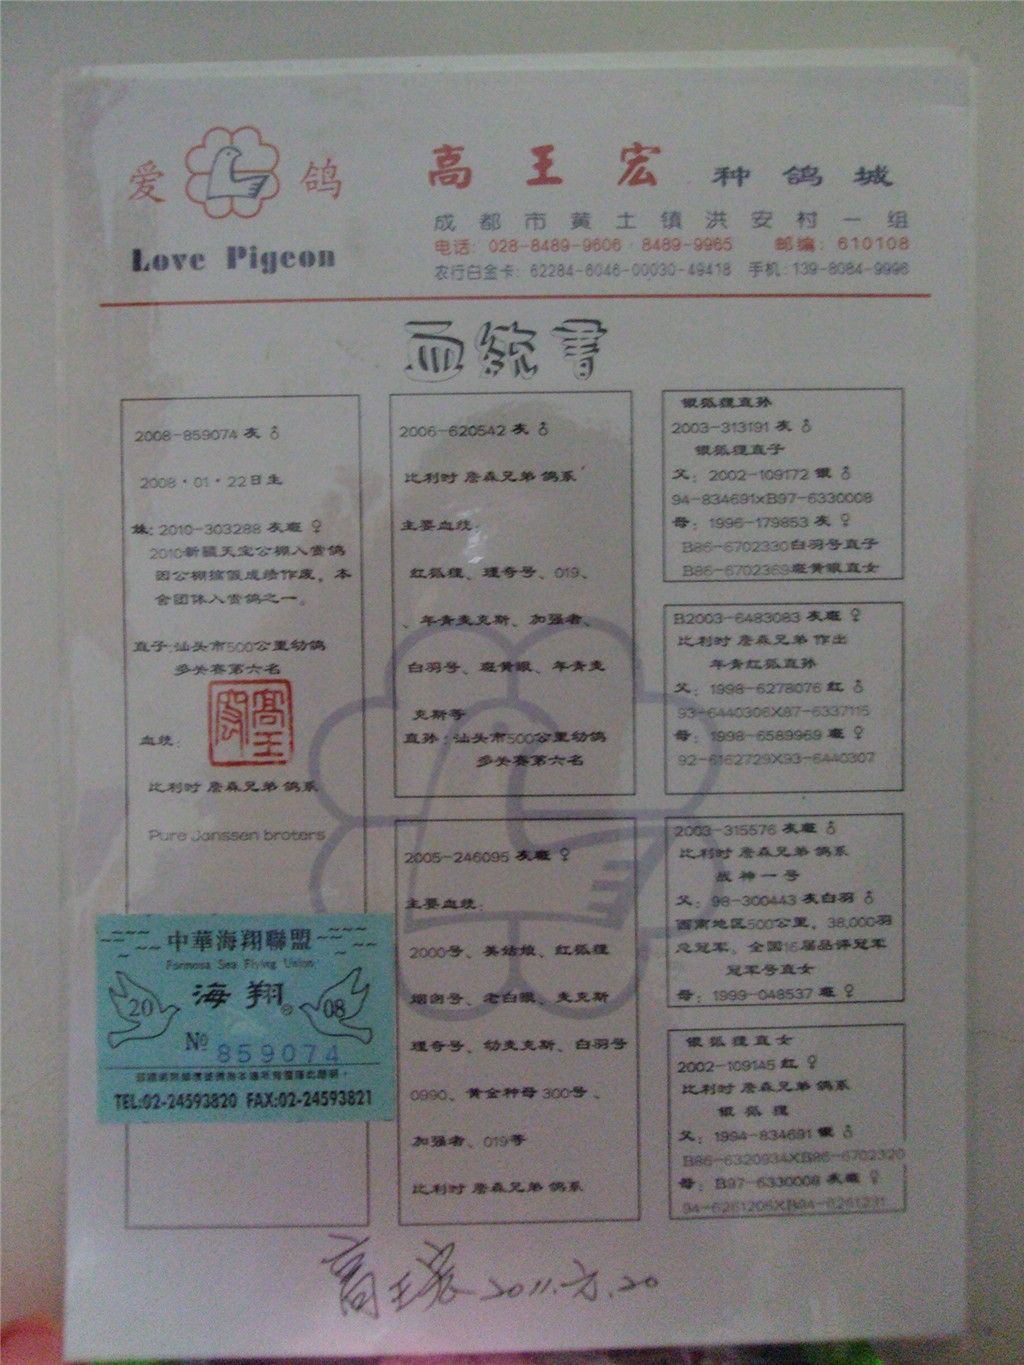 爱 鸽
Love Pigeon
高王宏 种鸽城
成都市黄土镇洪安村一组
电话: 028-8489-9606·8489-9965 邮编: 610108
农行白金卡: 62284-6046-00030-49418 手机:139-8084-9996
血统書
2008-859074 灰 ♂
2008·01·22日生
妹: 2010-303288 灰斑 ♀
2010新疆天宝公棚入赏鸽
因公棚搞假成绩作废, 本
舍团体入赏鸽之一。
直子:汕头市500公里幼鸽
多关赛第六名
血统:
比利时 詹森兄弟 鸽系
Pure Janssen broters
中華海翔聯盟
Formosa Sea Flying Union
海翔®
20 08
№ 859074
TEL:02-24593820 FAX:02-24593821
2006-620542 灰 ♂
比利时 詹森兄弟 鸽系
主要血统:
红狐狸、理奇号、019、
、年青麦克斯、加强者、
白羽号、斑黄眼、年青麦
克斯等
直孙:汕头市500公里幼鸽
多关赛第六名
2005-246095 灰斑 ♀
主要血统:
2000号、美姑娘、红狐狸
烟囱号、老白眼、麦克斯
理奇号、幼麦克斯、白羽号
0990、黄金种母 300号、
加强者、019等
比利时 詹森兄弟 鸽系
银狐狸直孙
2003-313191 灰 ♂
银狐狸直子
父: 2002-109172 银 ♂
94-834691xB97-6330008
母: 1996-179853 灰 ♀
B86-6702330白羽号直子
B86-6702369斑黄眼直女
B2003-6483083 灰斑 ♀
比利时 詹森兄弟 作出
年青红狐直孙
父: 1998-6278076 红 ♂
93-6440306X87-6337115
母: 1998-6589969 斑 ♀
92-6162729X93-6440307
2003-315576 灰斑 ♂
比利时 詹森兄弟 鸽系
战神一号
父: 98-300443 灰白羽 ♂
西南地区500公里, 38,000羽
总冠军、全国16届品评冠军
冠军号直女
母: 1999-048537 斑 ♀
银狐狸直女
2002-109145 红 ♀
比利时 詹森兄弟 鸽系
银狐狸
父: 1994-834691 银 ♂
B86-6320934XB86-6702320
母: B97-6330008 灰斑 ♀
94-6261206XB94-6261231
2011.6.20